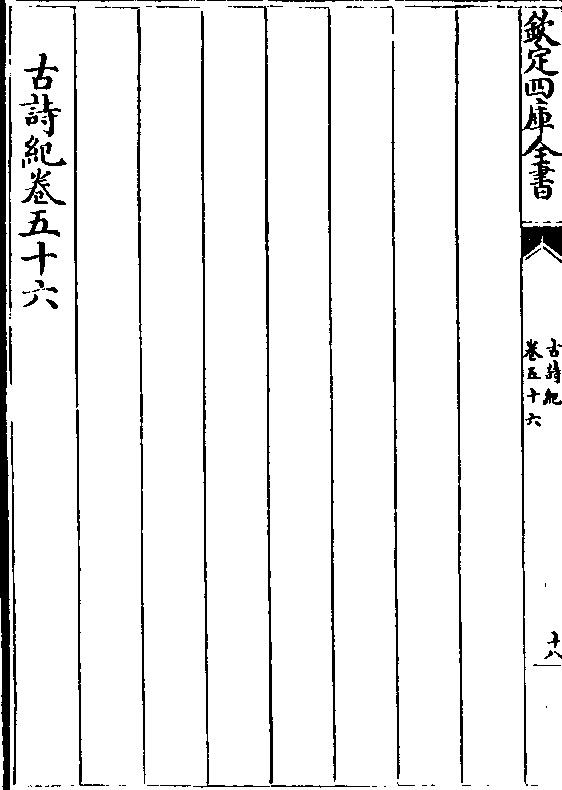 欽定四庫全書
古詩紀
卷五十六
十八
古詩紀卷五十六